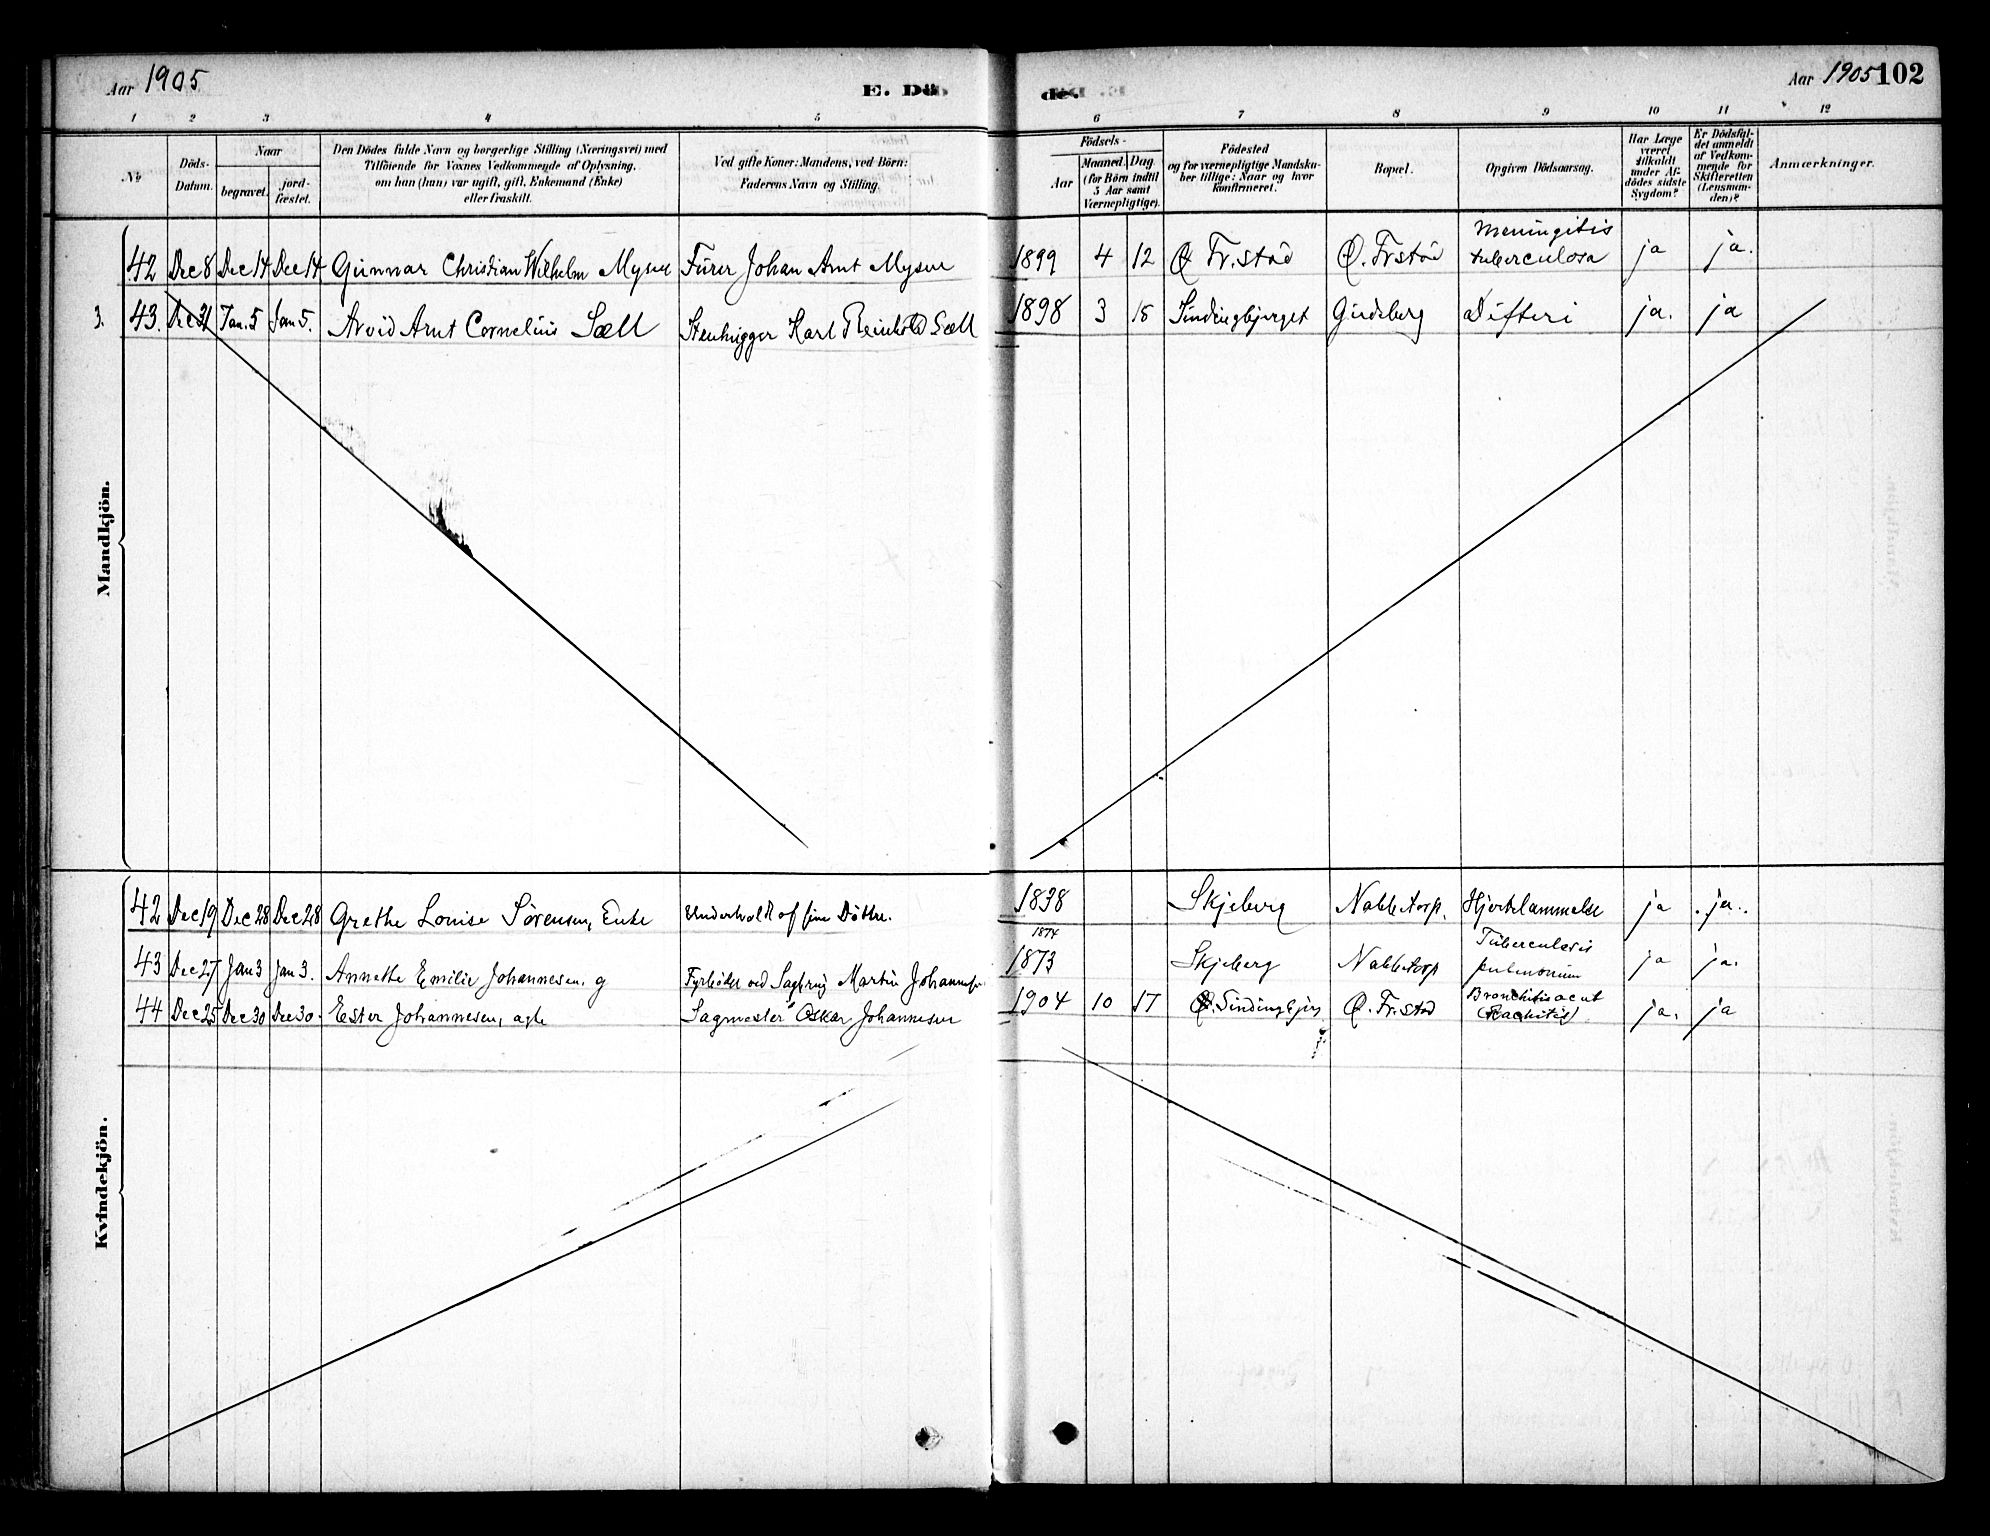 Aar 1905
E. Dö
de.
Aar 1905 102
1 2 3 4 5 6 7 8 9 10 11 12
No
Döds-Datum.
Naar
begravet.
jord-fæstet.
Den Dödes fulde Navn og borgerlige Stilling (Næringsvei) med
Tilföiende for Voxnes Vedkommende af Oplysning,
om han (hun) var ugift, gift, Enkemand (Enke)
eller fraskilt.
Ved gifte Koner: Mandens, ved Börn:
Faderens Navn og Stilling.
Födsels-
Aar
Maaned. Dag
(for Börn indtil
5 Aar samt
Værnepligtige).
Födested
og for værnepligtige Mandska-
ber tillige: Naar og hvor
konfirmeret.
Bopæl.
Opgiven Dödsaarsag.
Har Læge
været
tilkaldt
under Af-
dödes sidste
Sygdom?
Er Dödsfal-
det anmeldt
af Vedkom-
mende for
Skifteretten
(Lensman-
den)?
Anmærkninger.
Mandkjön.
42 Dec 8 Dec 14 Dec 14 Gunnar Christian Wilhelm Mysen Fürer Johan Arnt Mysen 1899 4 12 Ø Fr.stad Ø. Frstad Meningitis tuberculosa ja ja.
3. 43. Dec 31 Jan. 5 Jan 5. Arvid Arnt Cornelius Sæll Stenhugger Karl Reinhold Sæll 1898 3 15 Sindingbjerget Gudeberg Difteri ja. ja
Kvindekjön.
42 Dec 19 Dec 28 Dec 28 Grethe Louise Sörensen, Enke Underholdt af sine Döttre. 1838 Skjeberg Nabbetorp. Hjertelammelse ja ja.
1874
43 Dec 27 Jan 3 Jan 3. Annethe Emilie Johannesen. g Fyrböder ved Sagbrug Martin Johannesen 1873 Skjeberg Nabbetorp Tuberculosis pulmonum ja ja.
44 Dec 25 Dec 30 Dec 30. Ester Johannesen, agte Sagmester Oskar Johannesen 1904 10 17 Ø. Sindingbjerg Ø. Fr.stad Bronchitis acut (Rachitis) ja. ja